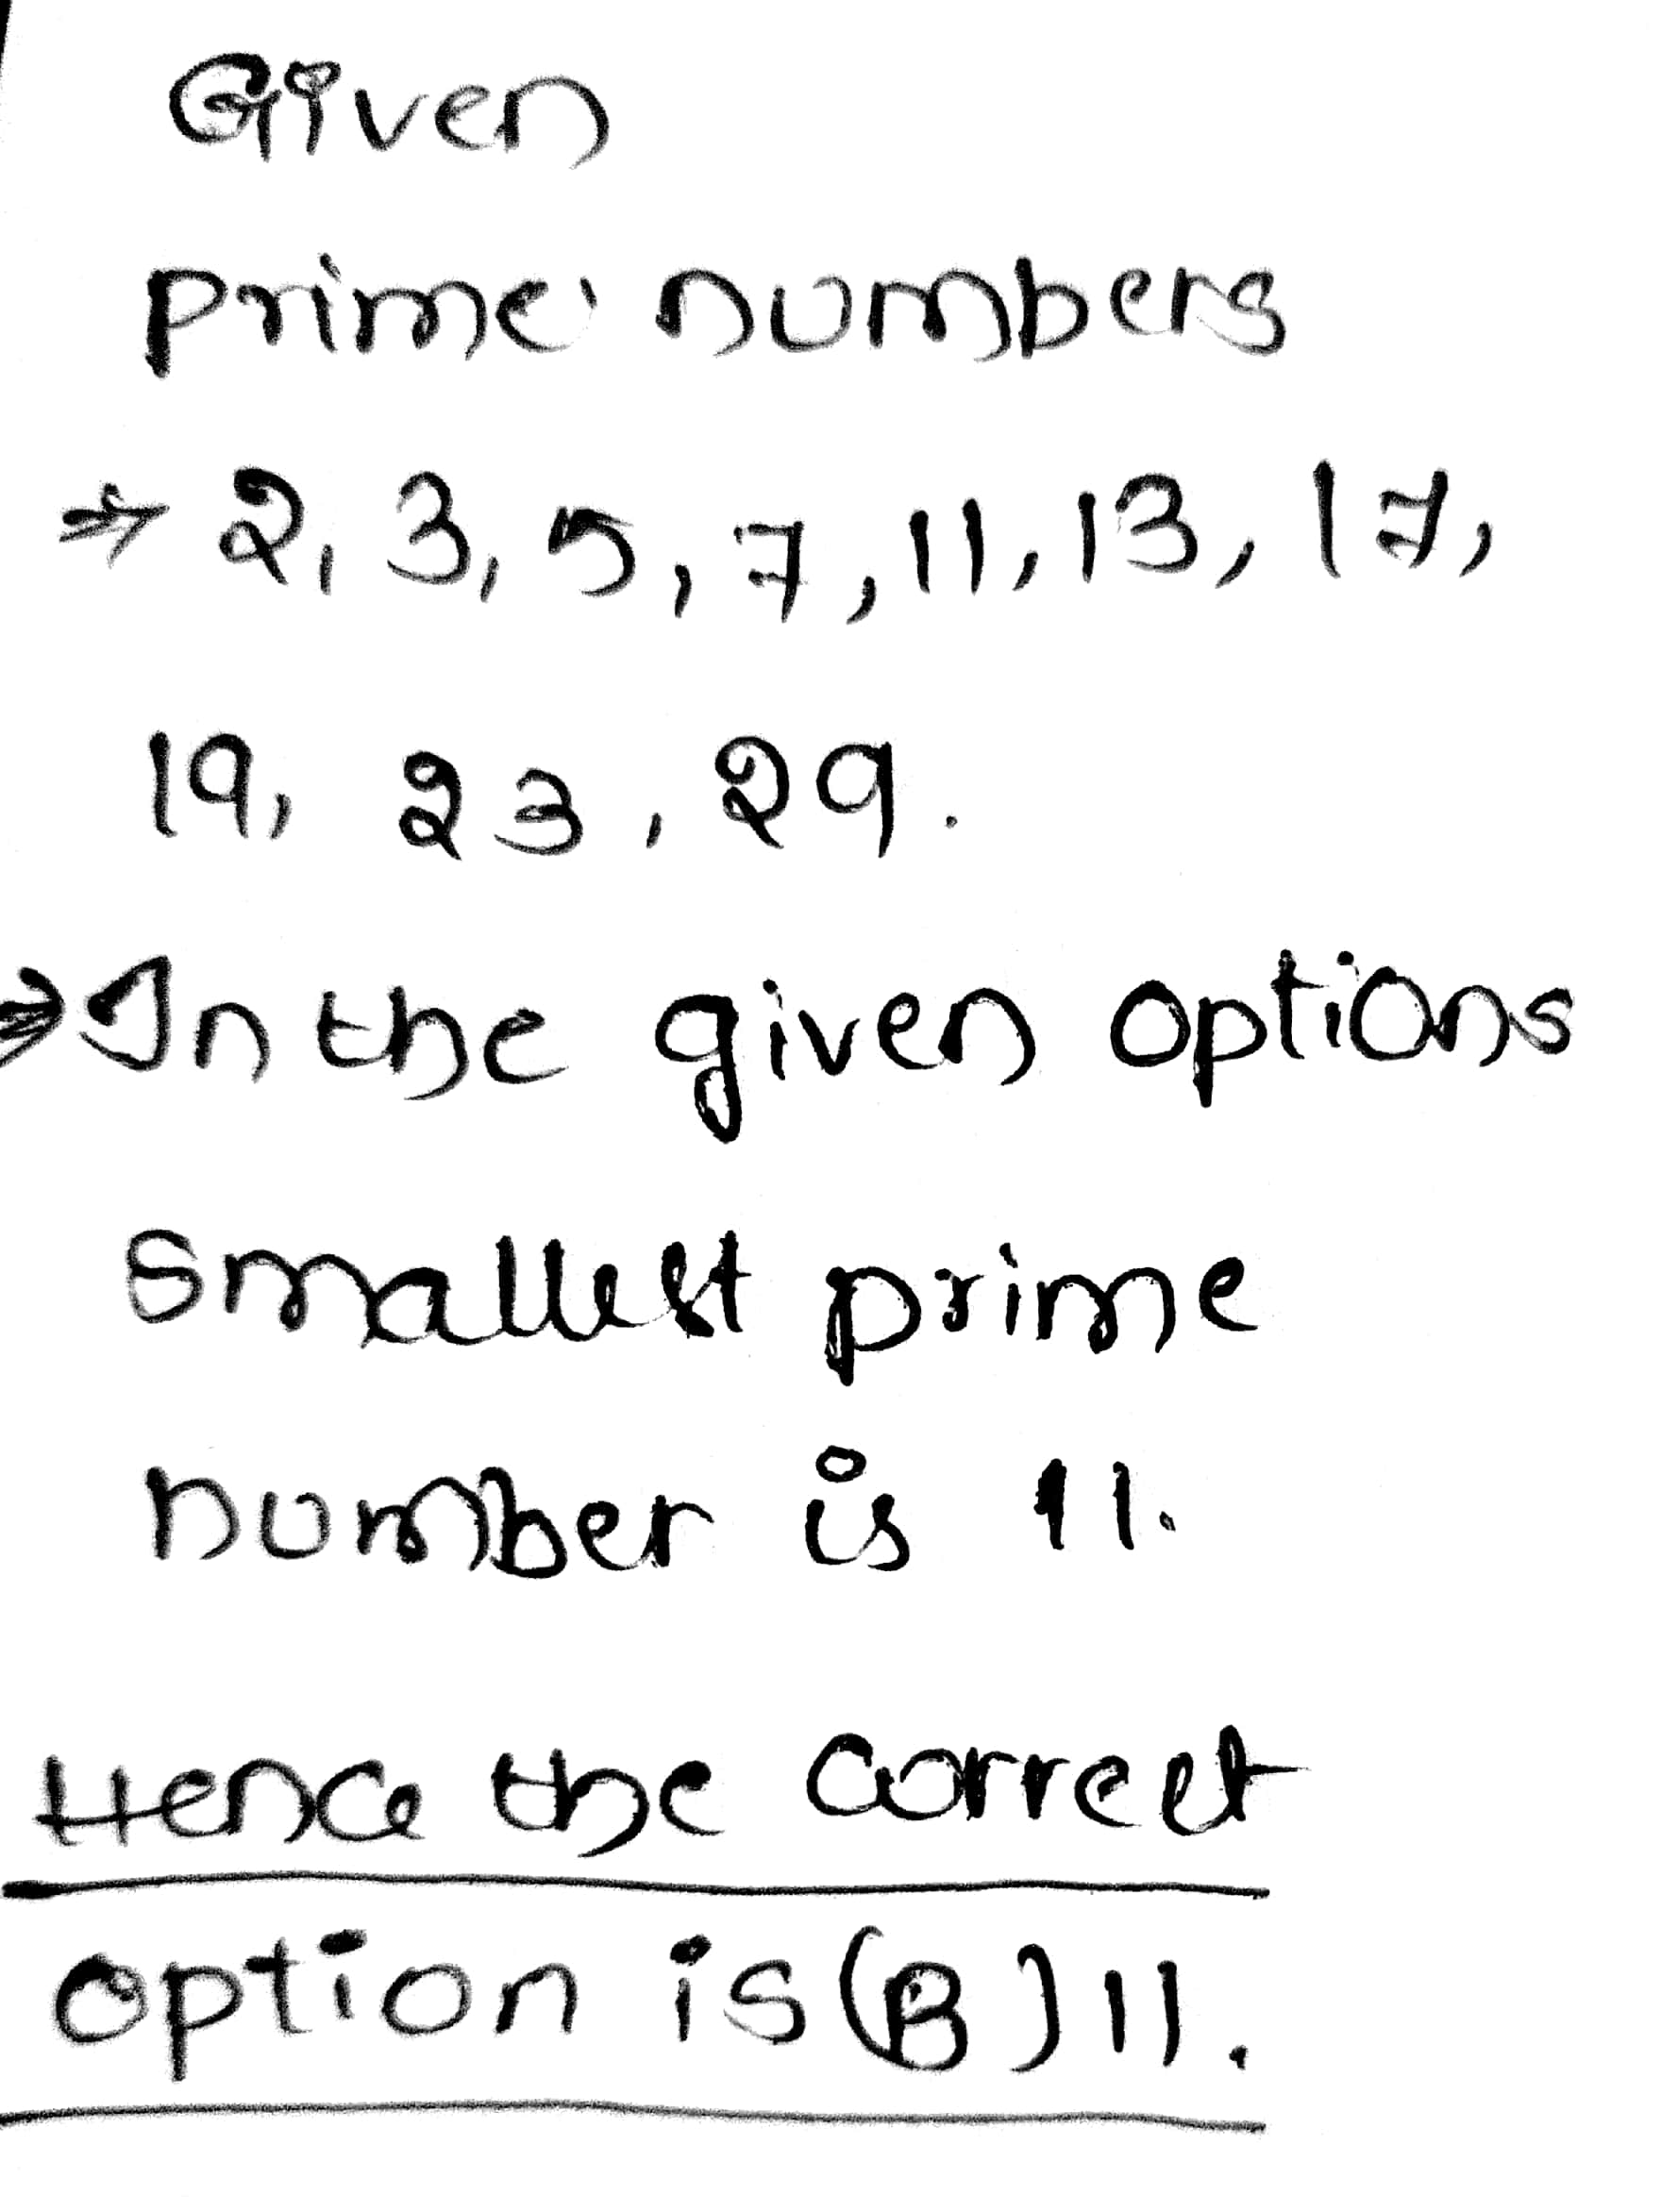 Given
prime numbers
⇒ 2, 3, 5, 7, 11, 13, 17,
19, 23, 29.
⇒ In the given options
smallest prime
number is 11.
Hence the correct
option is (B) 11.